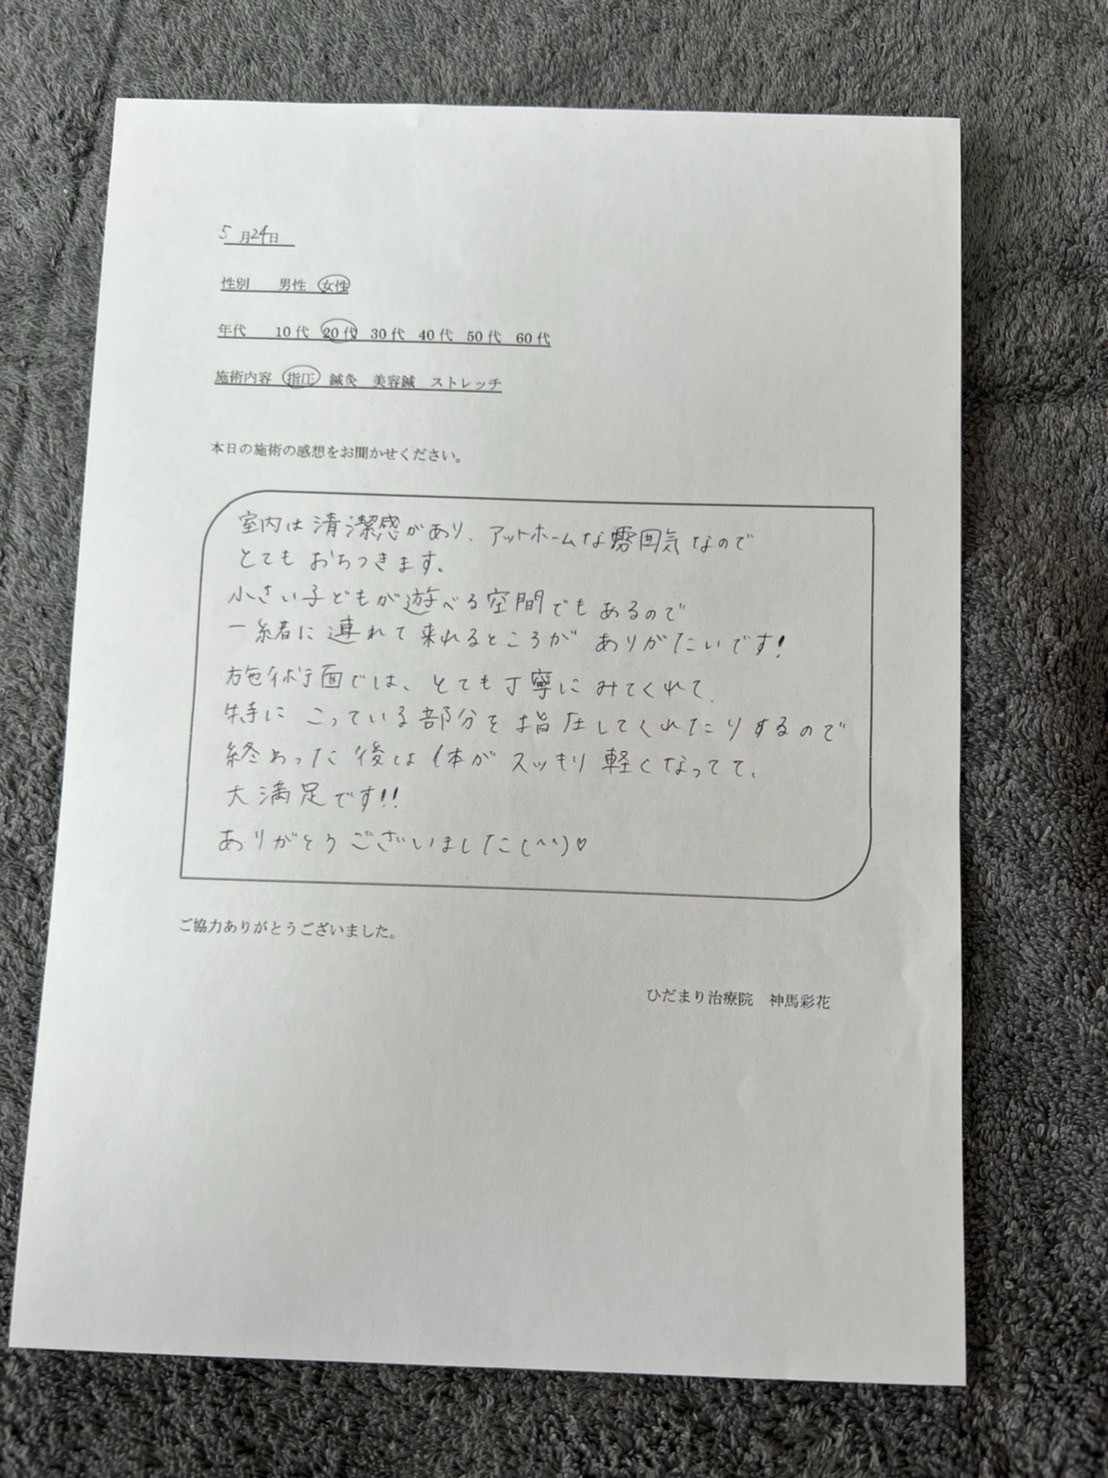 5月24日
性別 男性 女性
年代 10代 20代 30代 40代 50代 60代
施術内容 指圧 鍼灸 美容鍼 ストレッチ
本日の施術の感想をお聞かせください。
室内は清潔感があり、アットホームな雰囲気なので
とてもおちつきます。
小さい子どもが遊べる空間でもあるので
一緒に連れて来れるところが ありがたいです!
施術面では、とても丁寧にみてくれて、
特に こっている部分を指圧してくれたりするので
終わった後は体がスッキリ軽くなってて、
大満足です!!
ありがとうございました(^^)♡
ご協力ありがとうございました。
ひだまり治療院 神馬彩花